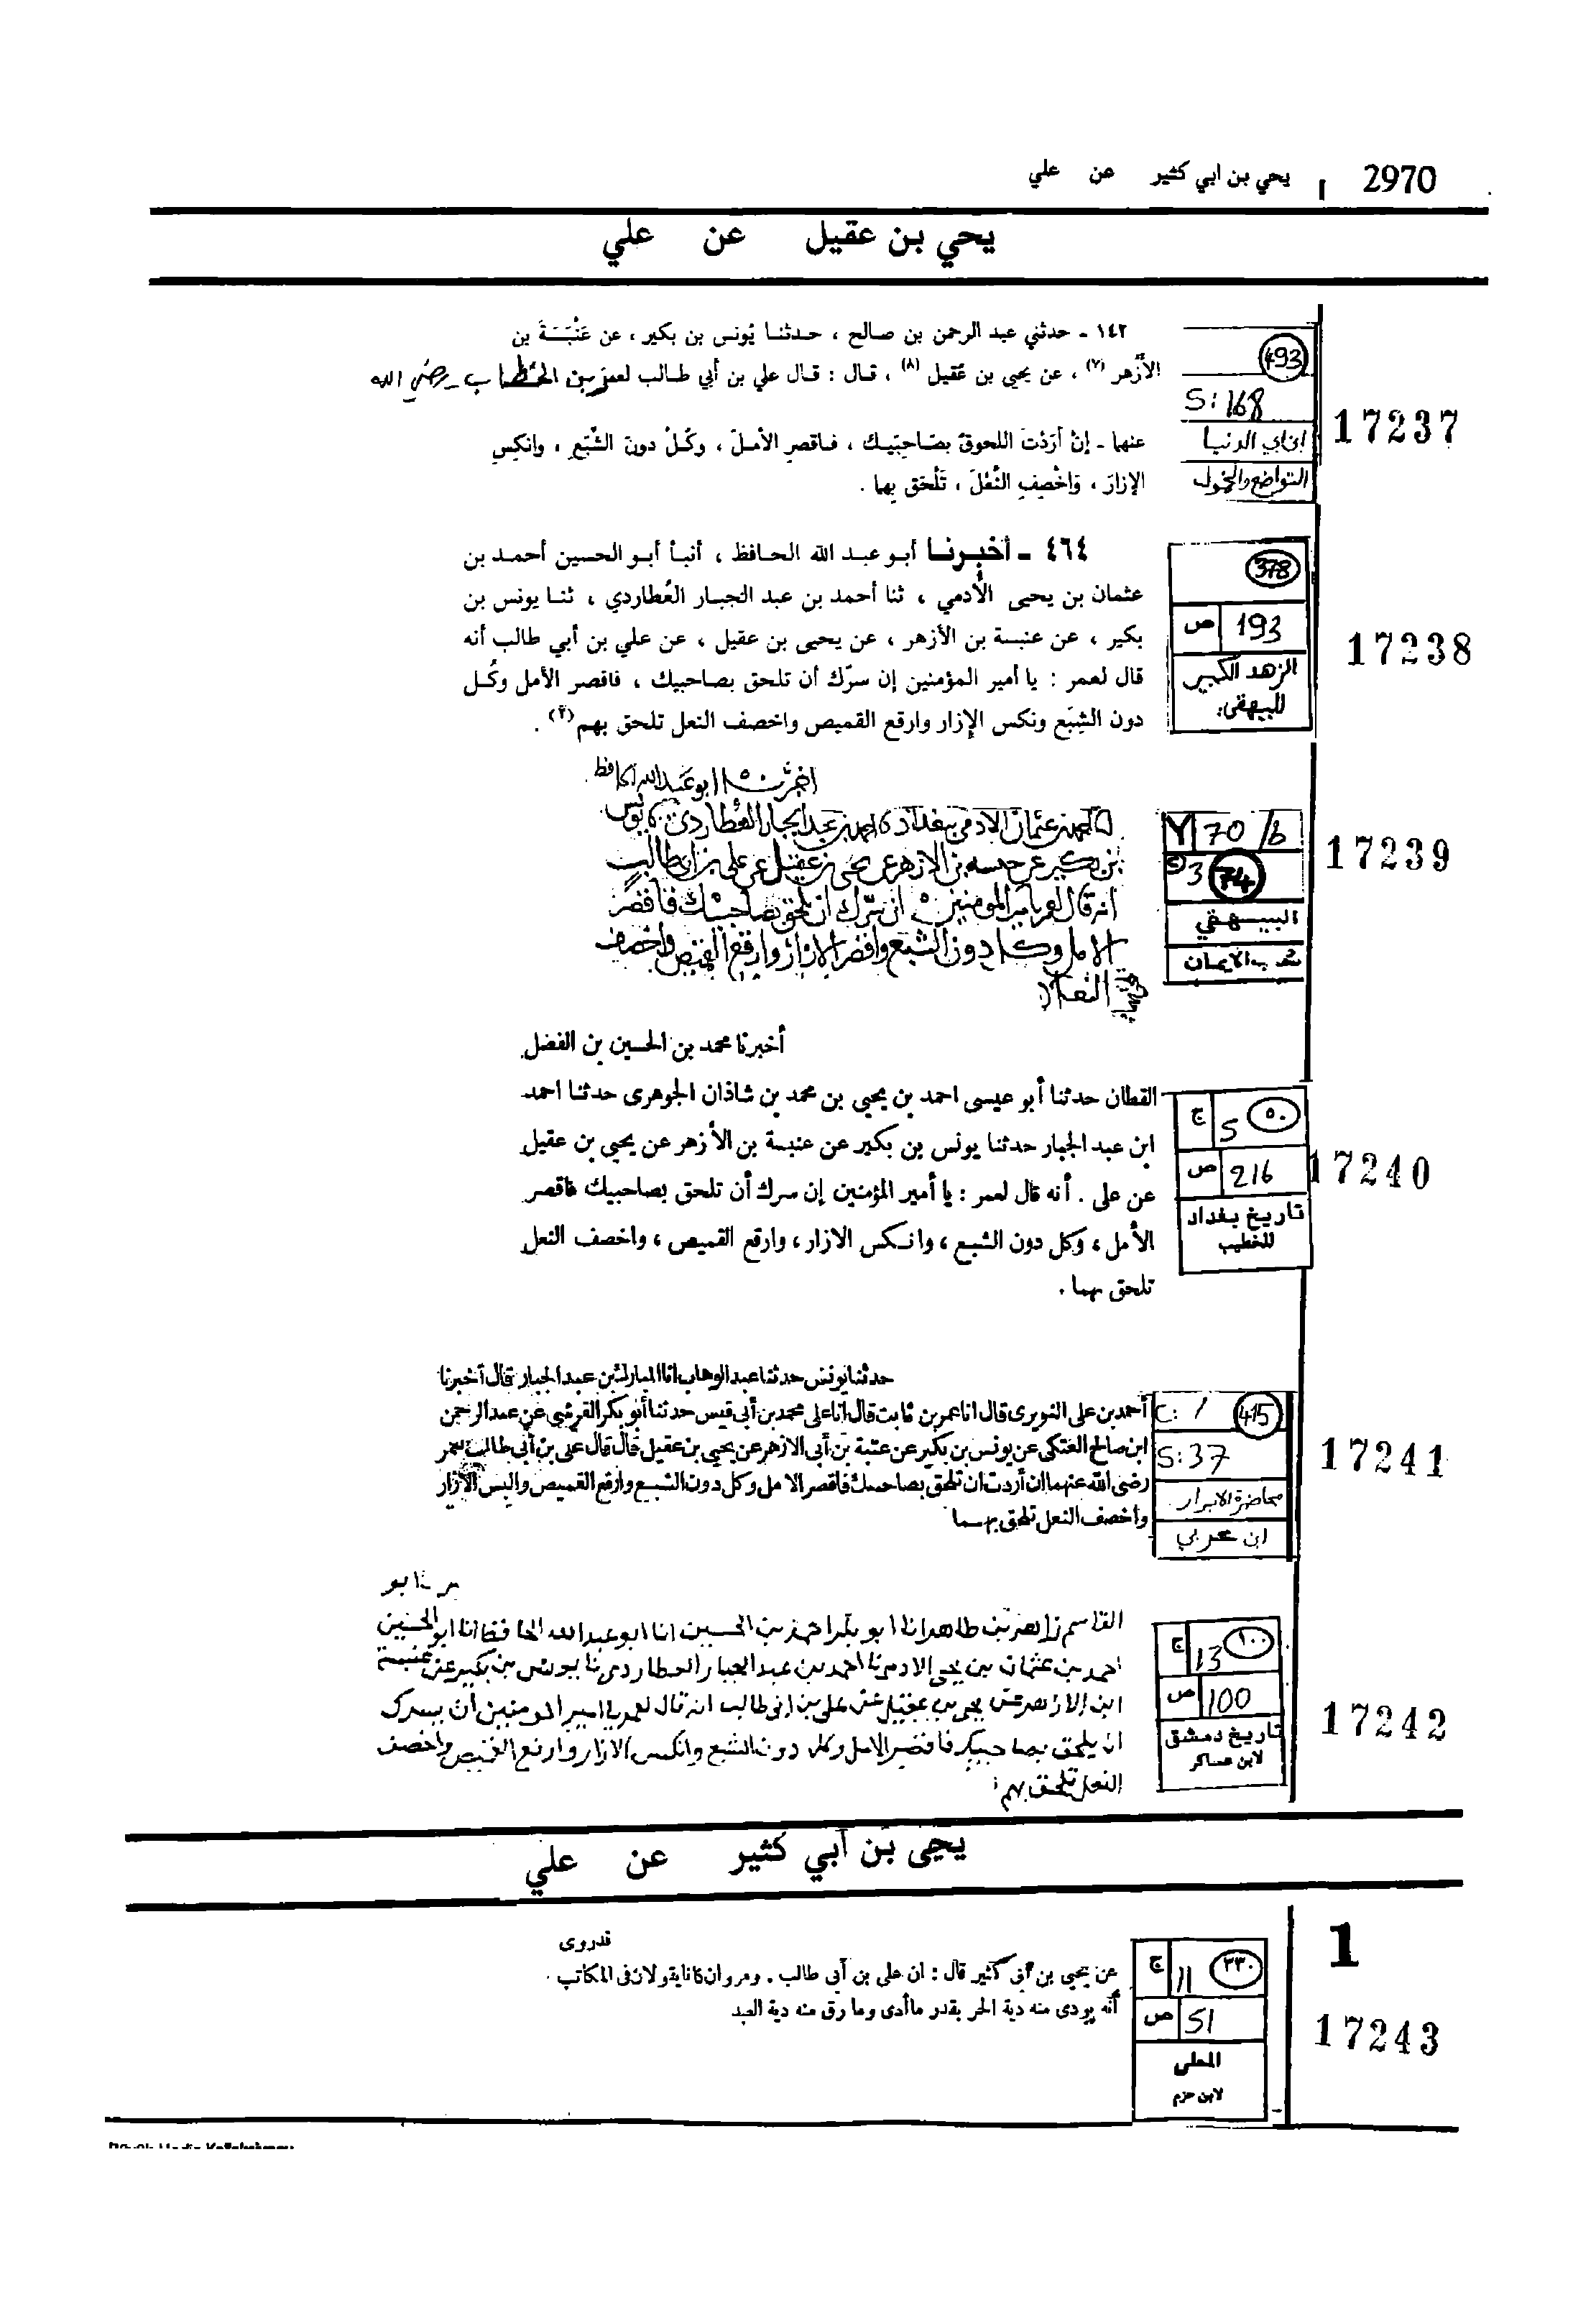 2970 يحي بن ابي كثير عن علي
يحي بن عقيل عن علي
١٤٢ - حدثني عبد الرحمن بن صالح ، حدثنا يُونس بن بكير ، عن عَنْبَسَةَ بن
الأزهر (٧) ، عن يحيى بن عُقيل (٨) ، قال : قال علي بن أبي طالب لعمر بن الخطاب رضي الله
عنهما - إنْ أرَدْتَ اللحوقَ بصَاحِبَيك ، فاقصرِ الأملَ ، وكُلْ دونَ الشِّبَعِ ، وانكِسِ
الإزارَ ، وَاخْصِفِ النَّعْلَ ، تَلْحَق بِهما .
493
S: 168
ابن ابي الدنيا
التواضع والخمول
17237
٤٦٤ - أخبرنا أبو عبد الله الحافظ ، أنبأ أبو الحسين أحمد بن
عثمان بن يحيى الأدمي ، ثنا أحمد بن عبد الجبار العُطاردي ، ثنا يونس بن
بكير ، عن عنبسة بن الأزهر ، عن يحيى بن عقيل ، عن علي بن أبي طالب أنه
قال لعمر : يا أمير المؤمنين إن سرّك أن تلحق بصاحبيك ، فاقصر الأمل وكُل
دون الشِبَع ونكس الإزار وارقع القميص واخصف النعل تلحق بهم(٣) .
378
193 ص
الزهد الكبير
للبيهقي
17238
ابو عبد الله الحافظ
احمد بن عثمان الادمي ببغداد احمد بن عبد الجبار العطاردي يونس
بن بكير عن بن الازهر عن يحيى بن عقيل عن علي بن ابي طالب
انه قال لعمر يا امير المومنين ان سرك ان تلحق بصاحبيك فاقصر
الامل وكل دون الشبع واقصر الازار وارقع القميص واخصف
النعل
Y 70/b
3 74
البيهقي
شعب الايمان
17239
أخبرنا محمد بن الحسين بن الفضل
القطان حدثنا أبو عيسى احمد بن يحيى بن محمد بن شاذان الجوهرى حدثنا احمد
ابن عبد الجبار حدثنا يونس بن بكير عن عنبسة بن الأزهر عن يحيى بن عقيل
عن على . أنه قال لعمر : يا أمير المؤمنين إن سرك أن تلحق بصاحبيك فاقصر
الأمل ، وكل دون الشبع ، وانكس الازار ، وارقع القميص ، واخصف النعل
تلحق بهما .
٥٠
5 ج
216 ص
تاريخ بغداد
للخطيب
17240
حدثنا يونس حدثنا عبد الوهاب انا المبارك بن عبد الجبار قال أخبرنا
أحمد بن على التويرى قال انا عمر بن ثابت قال أنا على محمد بن أبى قيس حدثنا أبو بكر القرشى عن عبد الرحمن
ابن صالح العتكى عن يونس بن بكير عن عتبة بن أبى الازهر عن يحيى بن عقيل قال قال على بن أبى طالب لعمر
رضى الله عنهما ان أردت ان تلحق بصاحبيك فاقصر الامل وكل دون الشبع وارقع القميص والبس الازار
واخصف النعل تلحق بهما
C: 1 415
S: 37
محاضرة الابرار
ابن عربي
17241
ابو
القاسم زاهر بن طاهر انا ابو بكر احمد بن الحسين انا ابو عبد الله الحافظ انا ابو الحسين
احمد بن عثمان بن يحيى الادمي نا احمد بن عبد الجبار العطاردي نا يونس بن بكير عن عنبسة
ابن الازهر عن يحيى بن عقيل عن علي بن ابي طالب انه قال لعمر يا امير المومنين ان يسرك
ان يلحق بصاحبيك فاقصر الامل وكل دون الشبع وانكس الازار وارقع القميص واخصف
النعل تلحق بهم
١٠٠
13 ج
100 ص
تاريخ دمشق
لابن عساكر
17242
يحيى بن أبي كثير عن علي
قد روى
عن يحيى بن أبى كثير قال : ان على بن أبى طالب . ومروان كانا يقولان فى المكاتب
أنه يودى منه دية الحر بقدر ما أدى وما رق منه دية العبد
٢٣٠
11 ج
51 ص
المحلى
لابن حزم
1
17243